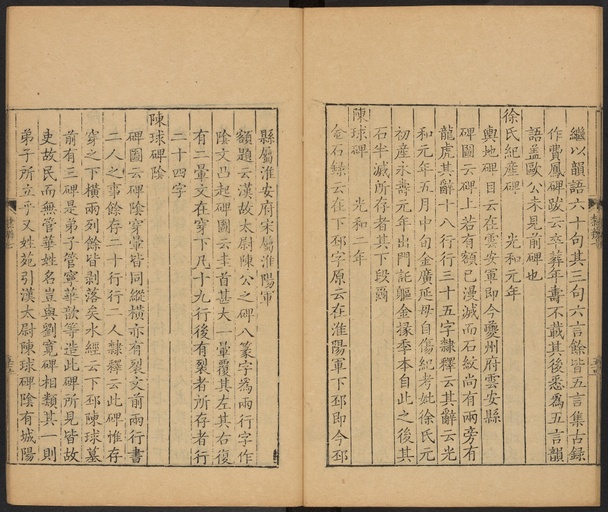 繼以韻語六十句其三句六言餘皆五言集古錄
作費鳳碑跋云卒葬年壽不載其後悉為五言韻
語蓋歐公未見前碑也
徐氏紀產碑 光和元年
輿地碑目云在雲安軍即今夔州府雲安縣
碑圖云碑上若有額已漫滅而石紋尚有兩旁有
龍虎其辭十八行行三十五字隸釋云其辭云光
和元年五月中旬金廣延母自傷紀考妣徐氏元
初產永壽元年出門託軀金掾季本自此之後其
石半滅所存者其下段爾
陳球碑 光和二年
金石錄云在下邳字原云在淮陽軍下邳即今邳
縣屬淮安府宋屬淮陽軍
額題云漢故太尉陳公之碑八篆字為兩行字作
陰文凸起碑圖云圭首甚大一暈覆其左其右復
有二暈文在穿下凡十九行後有裂者所存者行
二十四字
陳球碑陰
碑圖云碑陰穿暈皆同縱橫亦有裂文前兩行書
二人之事餘存二十行行二人隸釋云此碑惟存
穿之下橫兩列餘皆剥落矣水經云下邳陳球墓
前有三碑是弟子管寧華歆等造此碑所見皆故
吏故民而無管華姓名豈與劉寬碑相類其一則
弟子所立乎又姓苑引漢太尉陳球碑陰有城陽